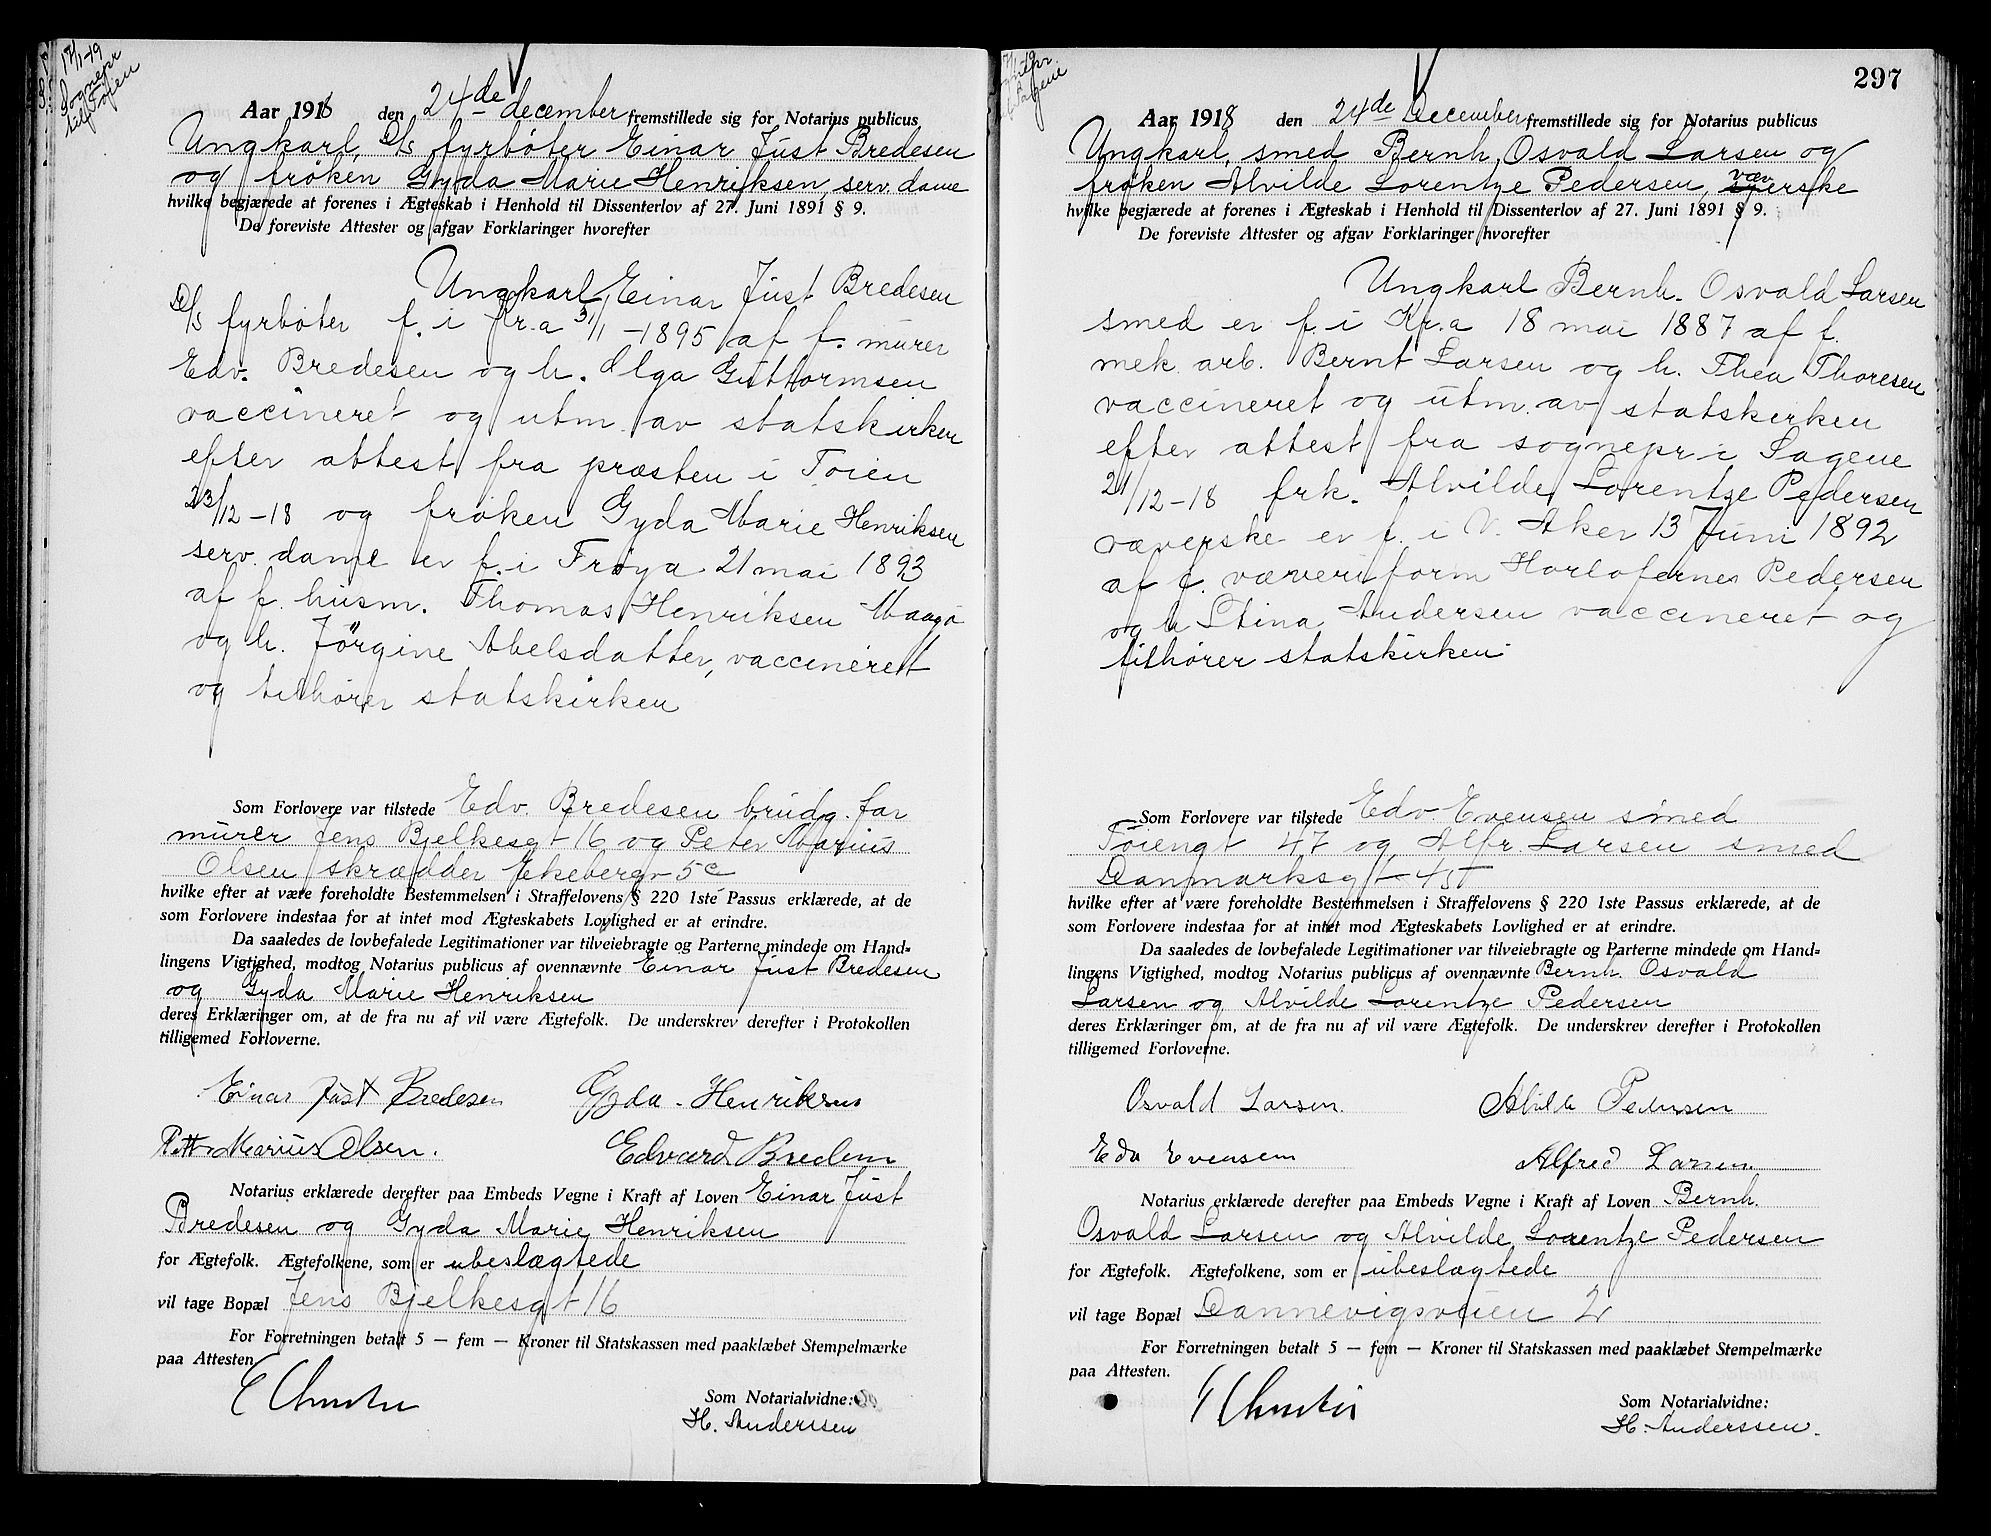 17/1-19
Sognepr
til Tøien
Aar 1918 den 24de december fremstillede sig for Notarius publicus
Ungkarl, D/s fyrbøter Einar Just Bredesen
og frøken Gyda Marie Henriksen, serv. dame
hvilke begjærede at forenes i Ægteskab i Henhold til Dissenterlov af 27. Juni 1891 § 9.
De foreviste Attester og afgav Forklaringer hvorefter
Ungkarl Einar Just Bredesen
D/s fyrbøter f. i Kr.a 3/1-1895 af f. murer
Edv. Bredesen og h. Olga Guttormsen
vaccineret og utm. av statskirken
efter attest fra præsten i Tøien
23/12-18 og frøken Gyda Marie Henriksen
serv. dame er f. i Frøya 21 mai 1893
af f. husm. Thomas Henriksen Maagø
og h. Jörgine Abelsdatter, vaccineret
og tilhører statskirken
Som Forlovere var tilstede Edv. Bredesen brudg. far
murer Jens Bjelkesgt 16 og Peter Marius
Olsen skrædder Ekebergv 5c
hvilke efter at være foreholdte Bestemmelsen i Straffelovens § 220 1ste Passus erklærede, at de
som Forlovere indestaa for at intet mod Ægteskabets Lovlighed er at erindre.
Da saaledes de lovbefalede Legitimationer var tilveiebragte og Parterne mindede om Hand-
lingens Vigtighed, modtog Notarius publicus af ovennævnte Einar Just Bredesen
og Gyda Marie Henriksen
deres Erklæringer om, at de fra nu af vil være Ægtefolk. De underskrev derefter i Protokollen
tilligemed Forloverne.
Einar Just Bredesen Gyda Henriksen
Petter Marius Olsen. Edvard Bredesen
Notarius erklærede derefter paa Embeds Vegne i Kraft af Loven Einar Just
Bredesen og Gyda Marie Henriksen
for Ægtefolk. Ægtefolkene, som er ubeslægtede
vil tage Bopæl Jens Bjelkesgt 16
For Forretningen betalt 5 — fem — Kroner til Statskassen med paaklæbet Stempelmærke
paa Attesten.
Som Notarialvidne:
H. Anderssen
297
Aar 1918 den 24de December fremstillede sig for Notarius publicus
Ungkarl, smed Bernh. Osvald Larsen og
frøken Alvilde Lorentze Pedersen, væverske
hvilke begjærede at forenes i Ægteskab i Henhold til Dissenterlov af 27. Juni 1891 § 9.
De foreviste Attester og afgav Forklaringer hvorefter
Ungkarl Bernh. Osvald Larsen
smed er f. i Kr.a 18 mai 1887 af f.
mek. arb. Bernt Larsen og h. Thea Thoresen
vaccineret og utm. av statskirken
efter attest fra sognepr i Sagene
21/12-18 frk. Alvilde Lorentze Pedersen
væverske er f. i V. Aker 13 Juni 1892
af f. væveriform Horlofernes Pedersen
og h Stina Andersen vaccineret og
tilhører statskirken.
Som Forlovere var tilstede Edv. Evensen smed
Tøiengt 47 og Alfr. Larsen smed
Danmarksgt 45
hvilke efter at være foreholdte Bestemmelsen i Straffelovens § 220 1ste Passus erklærede, at de
som Forlovere indestaa for at intet mod Ægteskabets Lovlighed er at erindre.
Da saaledes de lovbefalede Legitimationer var tilveiebragte og Parterne mindede om Hand-
lingens Vigtighed, modtog Notarius publicus af ovennævnte Bernh. Osvald
Larsen og Alvilde Lorentze Pedersen
deres Erklæringer om, at de fra nu af vil være Ægtefolk. De underskrev derefter i Protokollen
tilligemed Forloverne.
Osvald Larsen. Alvilde Pedersen
Edv Evensen Alfred Larsen
Notarius erklærede derefter paa Embeds Vegne i Kraft af Loven Bernh.
Osvald Larsen og Alvilde Lorentze Pedersen
for Ægtefolk. Ægtefolkene, som er ubeslægtede
vil tage Bopæl Dannevigsveien 2
For Forretningen betalt 5 — fem — Kroner til Statskassen med paaklæbet Stempelmærke
paa Attesten.
Som Notarialvidne:
H. Anderssen.